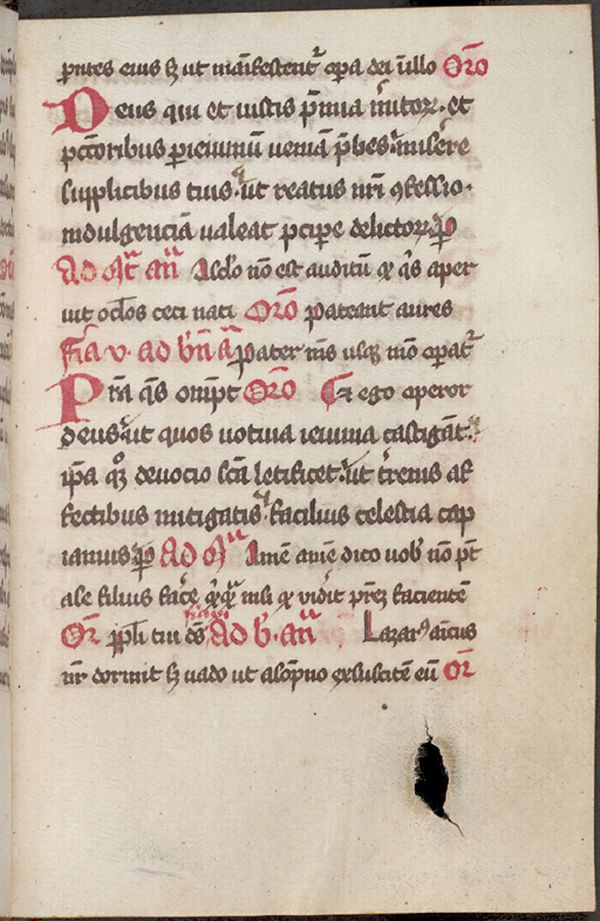 pͬntes eius sꝫ ut maĩfestentᷣ oꝑa dei ĩ illo Or̃o
Deus qui et iustis p̃mia m̃itoꝝ · et
pc̃toribus ꝑ ieiuniũ ueniã p̃bes · mis̃ere
supplicibus tuis · ut reatus nr̃i ꝯfessio ·
indulgenciã ualeat ꝑciꝑe delictoꝝ ꝑ
Ad añ A sc̃lo nõ est auditũ qͥ q̃s aper
uit oc̃los ceci nati Or̃o Pateant aures
Fr̃ia v · ad bñ a Pater m̃s usqꝫ mõ oꝑatᷣ
Pr̃a q̃s omp̃t Or̃o Et ego operor
deus · ut quos uotiua ieiunia castigãt ·
ip̃a qꝫ deuocio sc̃a letificet · ut t̃renis af
fectibus mitigatis · facilius celestia cap
iamus ꝑ Ad Amẽ amẽ dico uob̾ nõ p̃t
a se filius fac̾e qͥcqᷓ nisi qͥ vid̾it pr̃eꝫ facientẽ
Or̃ ppl̃i tui ds̃ Ad b̾ · añ Lazarꝰ aĩcus
nr̃ dormit sꝫ uado ut a sõpno exsuscitẽ eũ Or̃